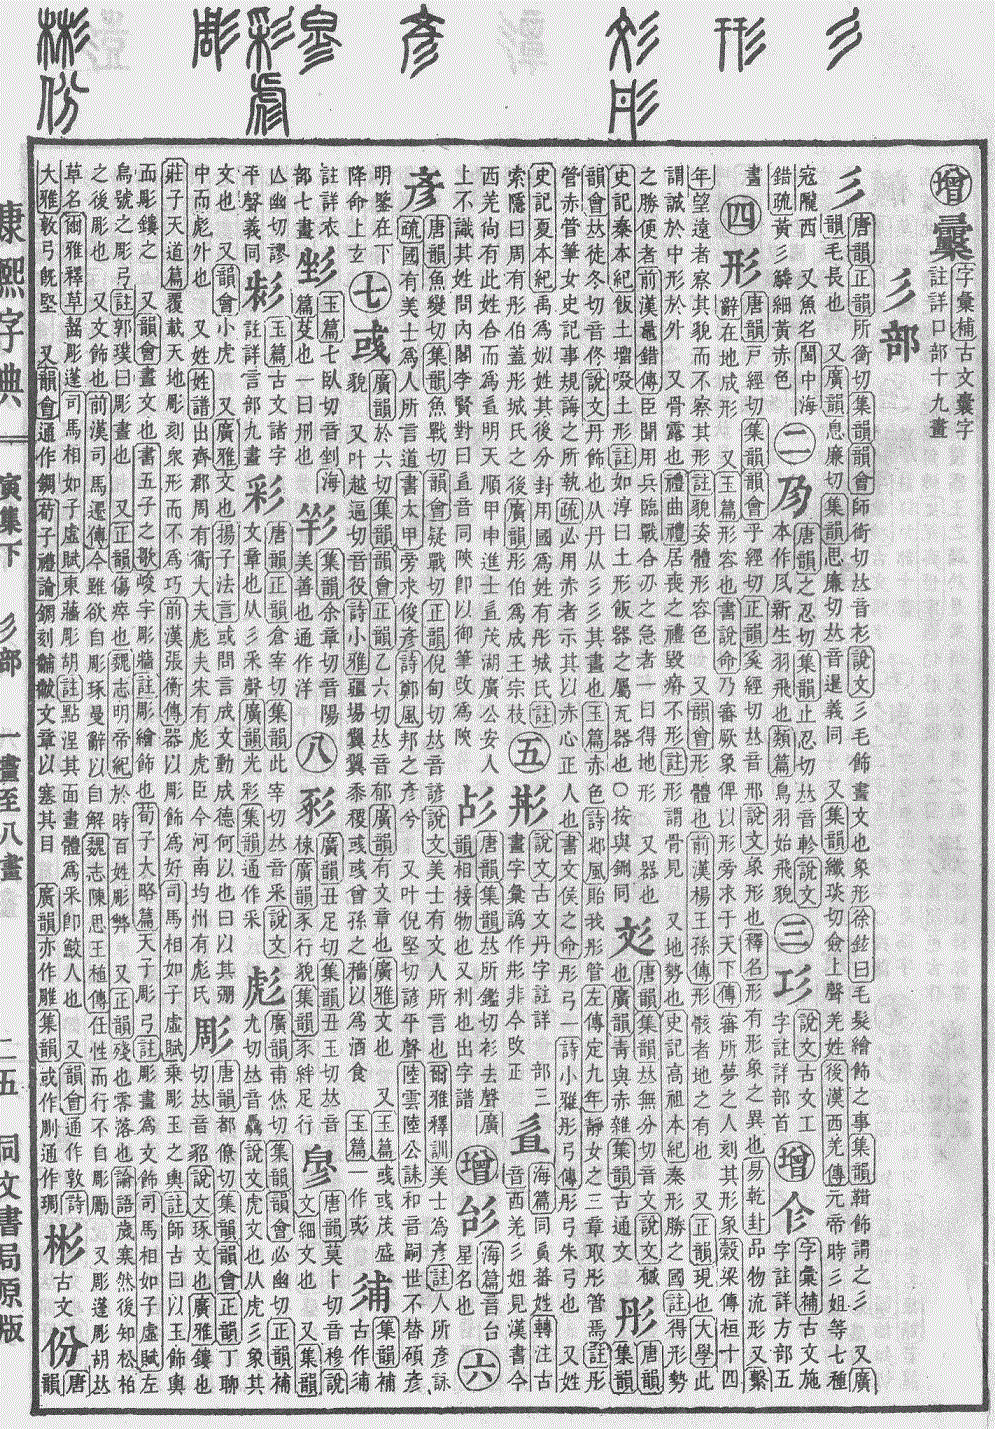 增 字彙補古文囊字註詳口部十九畫
彡部
彡 唐韻正韻所銜切集韻韻會師銜切𠀤音衫說文彡毛飾畫文也象形徐鉉曰毛髮繪飾之事集韻鞞飾謂之彡 又廣韻毛長也 又廣韻息廉切集韻思廉切𠀤音暹義同 又集韻纖琰切僉上聲羌姓後漢西羌傳元帝時彡姐等七種
寇隴西 又魚名閩中海錯琉黃彡鱗細黃赤色 二 唐韻之忍切集韻止忍切𠀤音軫說文 本作 新生羽飛也類篇鳥羽始飛貌 三 㣉 說文古文工字註詳部首 增 字彙補古文施字註詳方部五畫
四 形 唐韻戸經切集韻韻會乎經切正韻奚經切𠀤音邢說文象形也釋名形有形象之異也易乾卦品物流形又繫辭在地成形 又玉篇形容也書說命乃審厥象俾以形旁求于天下傳審所夢之人刻其形象穀梁傳桓十四
年望遠者察其貌而不察其形註貌姿體形容色 又韻會形體也前漢楊王孫傳形骸者地之有也 又正韻現也大學此謂誠於中形於外 又骨露也禮曲禮居喪之禮毀瘠不形註形謂骨見 又地勢也史記高祖本紀秦形勝之國註得形勢
之勝便者前漢鼂錯傳臣聞用兵臨戰合刃之急者一曰得地形 又器也史記秦本紀飯土塯啜土形註如淳曰土形飯器之屬瓦器也〇按與鉶同 彣 唐韻集韻𠀤無分切音文說文彧也廣韻靑與赤雜集韻古通文 彤 唐韻集韻
韻會𠀤徒冬切音佟說文丹飾也从丹从彡彡其畫也玉篇赤色詩邶風貽我彤管左傳定九年靜女之三章取彤管焉註彤管赤管筆女史記事規誨之所執疏必用赤者示其以赤心正人也書文侯之命彤弓一詩小雅彤弓傳彤弓朱弓也 又姓
史記夏本紀禹爲姒姓其後分封用國爲姓有彤城氏註索隱曰周有彤伯蓋彤城氏之後廣韻彤伯爲成王宗枝 五 說文古文丹字註詳丶部三畫字彙譌作 非今改正 海篇同 蕃姓轉注古音西羌彡姐見漢書今
西羌尙有此姓合而爲 明天順甲申進士 茂湖廣公安人上不識其姓問內閣李賢對曰 音同陝卽以御筆改爲陝 唐韻集韻𠀤所鑑切衫去聲廣韻相接物也又利也出字譜 增 海篇音台星名也 六
彥 唐韻魚變切集韻魚戰切韻會疑戰切正韻倪甸切𠀤音諺說文美士有文人所言也爾雅釋訓美士爲彥註人所彥詠疏國有美士爲人所言道書太甲旁求俊彥詩鄭風邦之彥兮 又叶倪堅切諺平聲陸雲陸公誄和音嗣世不替碩彥
明鑒在下降命上玄 七 彧 廣韻於六切集韻韻會正韻乙六切𠀤音郁廣韻有文章也廣雅文也 又玉篇彧彧茂盛貌 又叶越逼切音役詩小雅疆埸翼翼黍稷彧彧曾孫之穡以爲酒食 玉篇一作 集韻補古作
註詳衣部七畫 玉篇七臥切音剉海篇芟也一曰刑也 集韻余章切音陽美善也通作洋 八 廣韻丑足切集韻丑玉切𠀤音楝廣韻豕行貌集韻豕絆足行 㣎 唐韻莫卜切音穆說文細文也 又集韻
亾幽切謬平聲義同 玉篇古文諸字註詳言部九畫 彩 唐韻正韻倉宰切集韻此宰切𠀤音采說文文章也从彡采聲廣韻光彩集韻通作采 彪 廣韻甫烋切集韻韻會必幽切正韻補尤切𠀤音驫說文虎文也从虎彡象其
文也 又韻會小虎 又廣雅文也揚子法言或問言成文動成德何以也曰以其弸中而彪外也 又姓姓譜出齊郡周有衞大夫彪夫宋有彪虎臣今河南均州有彪氏 彫 唐韻都僚切集韻韻會正韻丁聊切𠀤音貂說文琢文也廣雅鏤也
莊子天道篇覆載天地彫刻衆形而不爲巧前漢張衡傳器以彫飾爲好司馬相如子虛賦乘彫玉之輿註師古曰以玉飾輿而彫鏤之 又韻會畫文也書五子之歌峻宇彫牆註彫繪飾也荀子大略篇天子彫弓註彫畫爲文飾司馬相如子虛賦左
烏號之彫弓註郭璞曰彫畫也 又正韻傷瘁也魏志明帝紀於時百姓彫弊 又正韻殘也零落也論語歲寒然後知松柏之後彫也 又文飾也前漢司馬遷傳今雖欲自彫琢曼辭以自解魏志陳思王植傳任性而行不自彫勵 又彫蓬彫胡𠀤
草名爾雅釋草齧彫蓬司馬相如子虛賦東薔彫胡註黥涅其面畫體爲采卽鮫人也 又韻會通作敦詩大雅敦弓旣堅 又韻會通作錭荀子禮論錭刻黼黻文章以塞其目 廣韻亦作雕集韻或作剛通作琱 彬 古文份 唐韻
康熙字典
寅集下 彡部 一畫至八畫
二五 同文書局原版